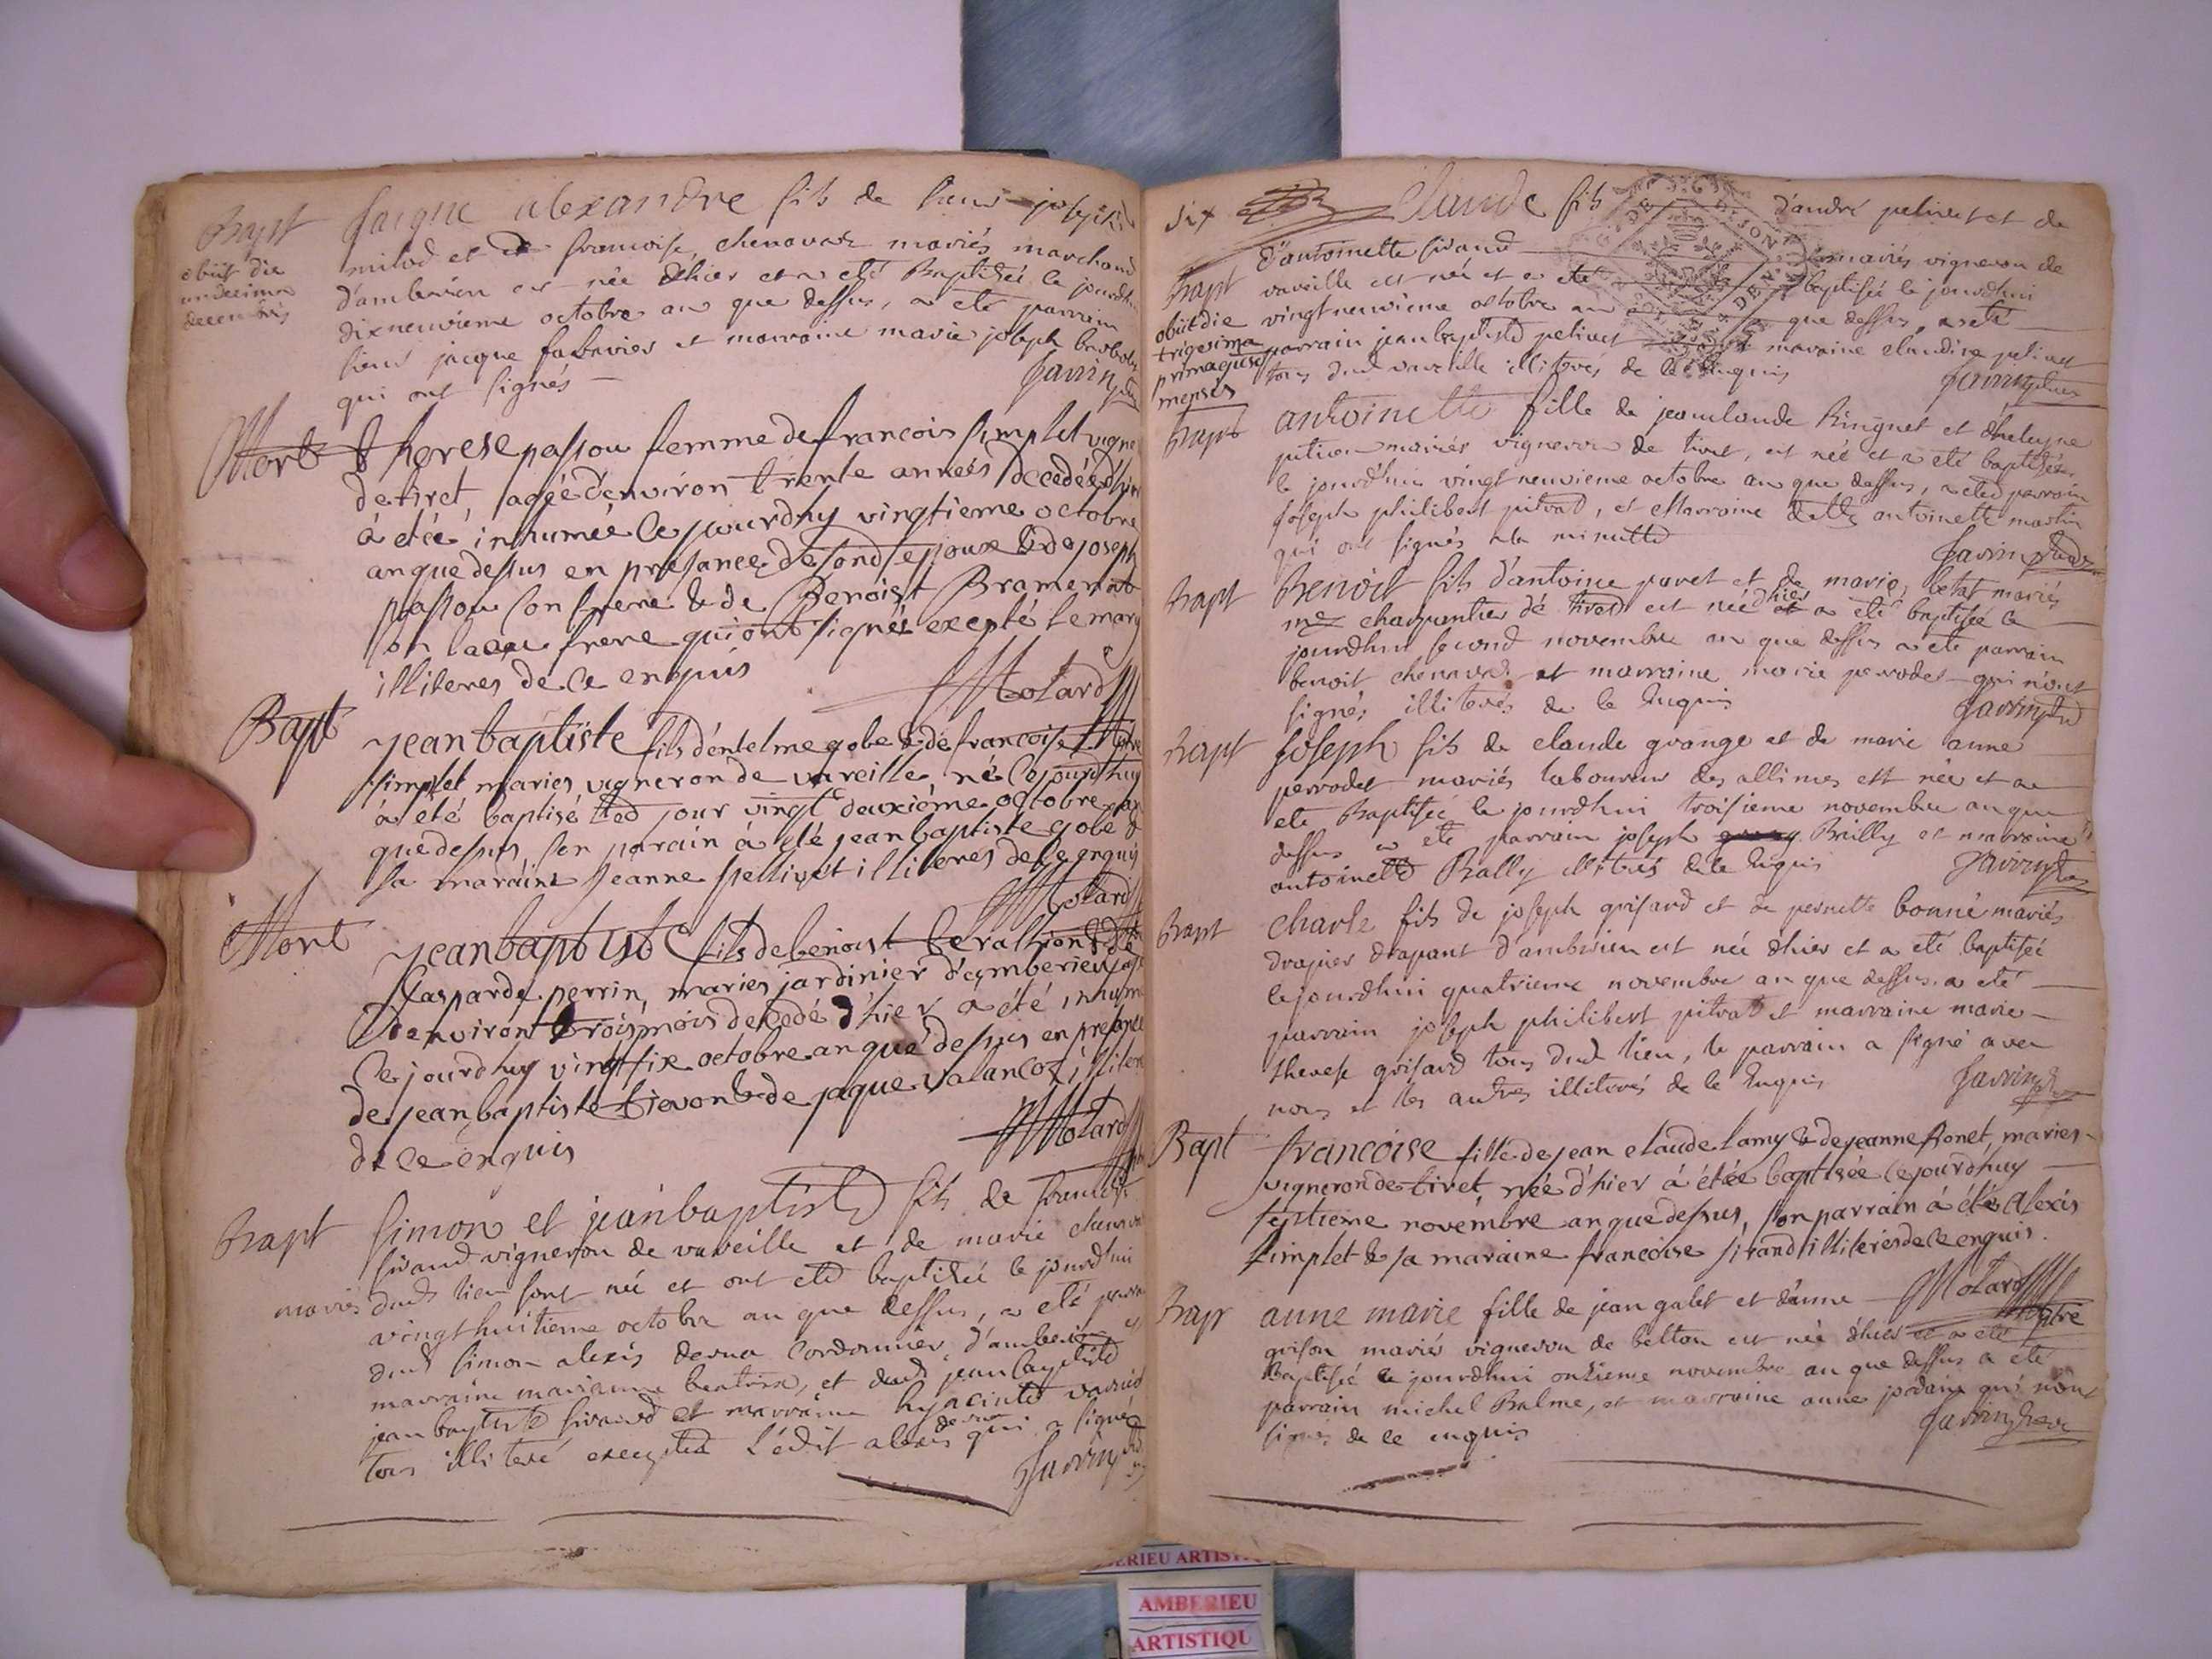 Bapt
obiit die
undecima
decembris
Jaique alexandre fils de sieur joseph
milod et de francoise chenavaz mariés marchand
d'amberieu est née dhier et a eté Baptisée le jourdhui
dixneuvieme octobre an que dessus, a eté parrain
sieur jacque favavier et marraine marie joseph
qui ont signés
Savrin ptre
Mort
Therese passou femme de francois simplet vigne
de tiret, agéé d'environ trente années decedée d'hier
à étéé inhumée ce jourdhuy vingtieme octobre
an que dessus en presance de sond epoux & de joseph
passou son frere & de Benoist Bramerat
son beau frere qui ont signés exepté le mary
illiteres de ce enquis
Molard
Bapt
jean baptiste fils d'entelme gobe & de francoise
simplet maries vigneron de vareille, né ce jourdhuy
à été baptisé led jour vingt deuxiéme octobre an
que dessus, son parain à été jean baptiste gobe &
sa maraine Jeanne pellivet illiteres de ce enquis
Molard
Mort
jean baptiste fils de benoist beralhion & de
Gasparde perrin, maries jardinier d'amberieu agé
d'environ trois mois decedé d'hier a été inhumé
ce jourdhuy vingt six octobre an que dessus en presance
de jean baptiste tievon & de jaque valancot illiter
de ce enquis
Molard
Bapt
Simon et jean baptiste fils de francois
sirand vigneron de vareille et de marie chenava
mariés dud lieu sont né et ont eté baptisée le jourdhui
vingt huitieme octobre an que dessus, a eté parra
dud simon alexis derua cordonnier d'amberieu et
marraine marianne beatrix, et dud jean baptiste
jean baptiste sirand et marraine hyacinte
tous illiteré exceptéd l'édit alexis derua qui a signé
Savrin ptre
six
Bapt
obiit die
trigesima
prima ejusd
mensis
Claude fils d'andré pelivet et de
d'antoinette sirand mairiés vigneron de
vareille est née et a eté baptisée le jourdhui
vingt neuvieme octobre an que dessus, a eté
parrain jean baptiste pelivet et maraine claudine pelivet
tous dud vareille illiterés de ce enquis
Savrin ptre
Bapt
antoinette fille de jean claude Ringuet et dheleyne
jutien mairiés vigneron de tiret, est née et a eté baptisée
le jourdhui vingt neuvieme octobre an que dessus, a eté parrain
joseph philibert pitrat, et Marraine delle antoinette martin
qui ont signés a la minutte
Savrin ptre
Bapt
Benoit fils d'antoine pavet et de marie betat mariés
me charpantier de tiret est née dhier et a eté baptisée ce
jourdhui second novembre an que dessus a eté parrain
benoit chenavas et marraine marie perrodet qui n'ont
signés illiterés de ce enquis
Savrin ptre
Bapt
Joseph fils de claude grange et de marie anne
perrodet mariés laboureur des allimes est née et a
eté Baptisée le jourdhui troisieme novembre an que
dessus a eté parrain joseph Brilly et marraine
antoinette Bally illitrés de ce enquis
Savrin ptre
Bapt
charle fils de joseph grisard et de pernette bonne mariés
drapier drapant d'amberieu est née dhier et a eté baptisée
le jourdhui quatrieme novembre an que dessus, a eté
parrain joseph philibert pitrat et marraine marie
therese grisard tous dud lieu, le parrain a signé avec
nous et les autres illiterés de ce enquis
Savrin ptre
Bapt
francoise fille de jean claude lamy & de jeanne bonet, maries
vigneron de tiret née d'hier à étée baptisée ce jourdhuy
septieme novembre an que dessus, son parrain à été Alexis
simplet & sa maraine francoise sirand illiteres de ce enquis.
Molard ptre
Bapt
anne marie fille de jean galet et d'anne
grison mariés vigneron de bettan est née dhier et a eté
Baptisée le jourdhui onzieme novembre an que dessus a eté
parrain michel Balme, et marraine anne jordain qui n'ont
signés de ce enquis
Savrin ptre
AMBERIEU ARTISTI
AMBERIEU
ARTISTIQU